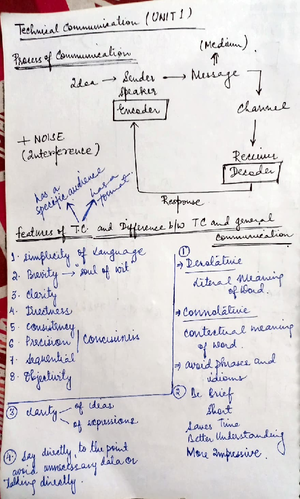 Technical Communication (UNIT 1)
Process of Communication
(Medium)
Idea → Sender → Message
Speaker
Encoder
Channel
+ NOISE
(Interference)
Receiver
Decoder
Response
has a specific audience
has a format
features of TC and Difference b/w TC and general Communication
1- simplicity of Language
2- Brevity → soul of wit
3- Clarity
4- Directness
5- Consistency
6- Precision
7- Sequential
8- Objectivity
Conciseness
①
→ Denotative
literal Meaning of Word.
→ Connotative
contextual meaning of word.
→ avoid phrases and idioms
② Be Brief
Short
Saves Time
Better Understanding
More Impressive.
③ clarity
of ideas
of expressions
④ Say directly, to the point
avoid unnecessary data or
Talking directly.